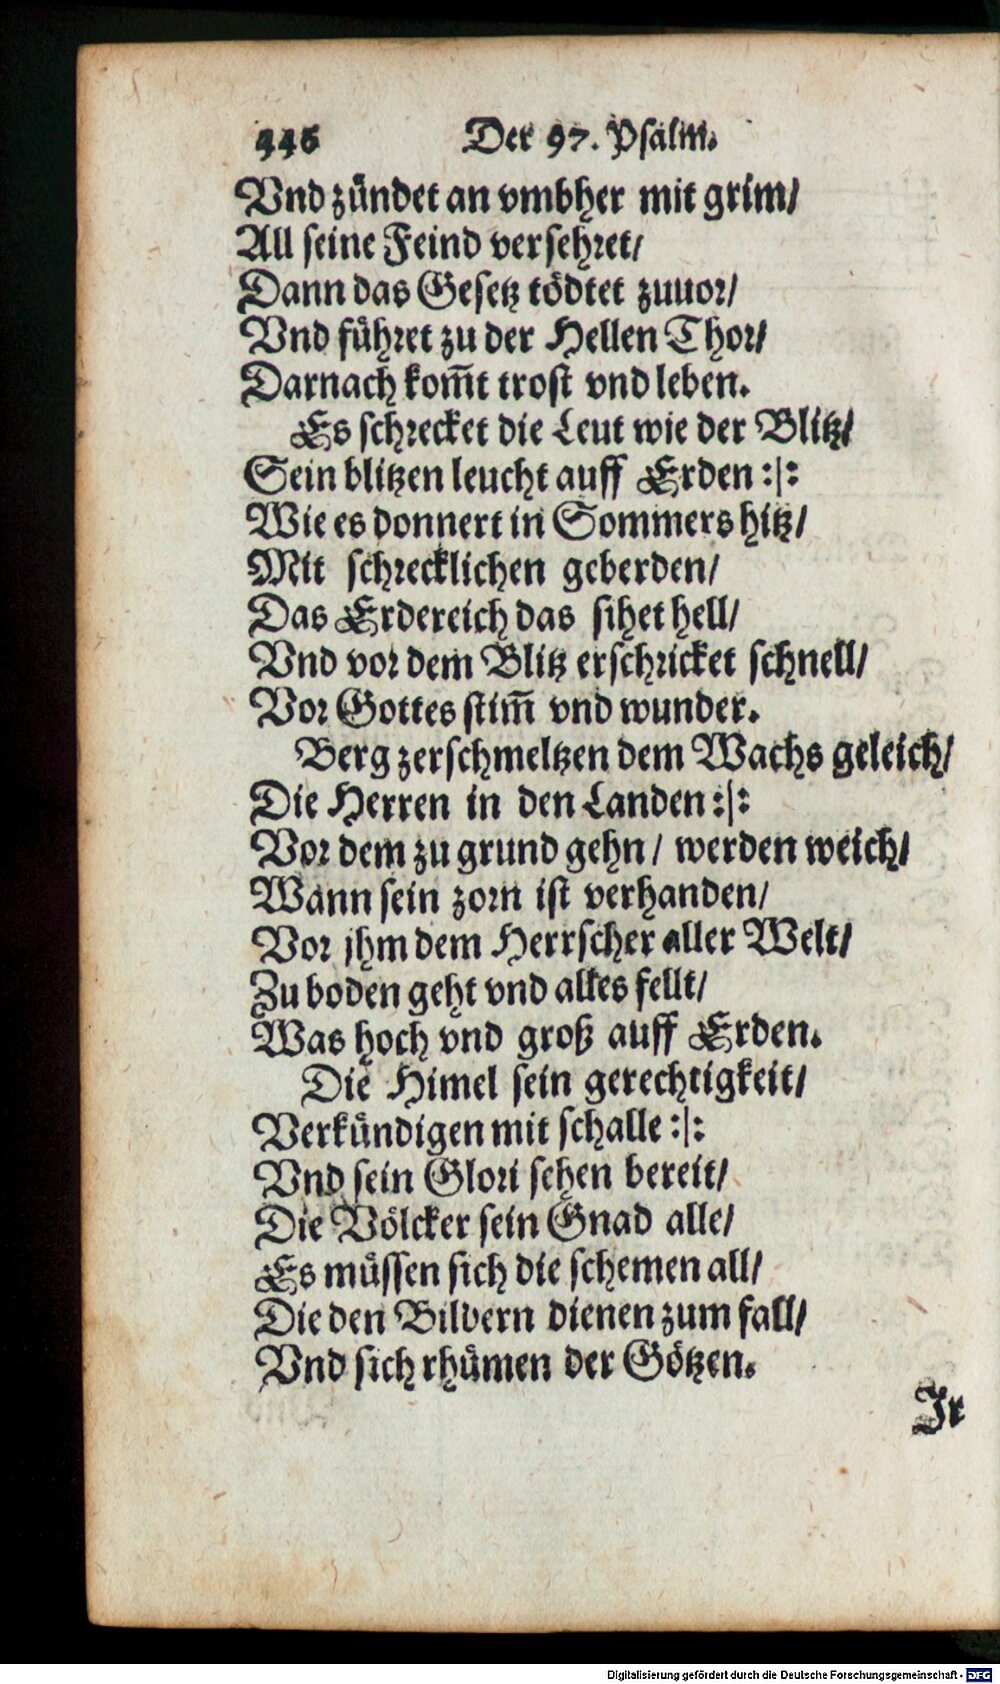 446 Der 97. Psalm.
Vnd zündet an vmbher mit grim/
All seine Feind versehret/
Dann das Gesetz tödtet zuuor/
Vnd führet zu der Hellen Thor/
Darnach kom̃t trost vnd leben.
Es schrecket die Leut wie der Blitz/
Sein blitzen leucht auff Erden :|:
Wie es donnert in Sommers hitz/
Mit schrecklichen geberden/
Das Erdereich das sihet hell/
Vnd vor dem Blitz erschricket schnell/
Vor Gottes stim̃ vnd wunder.
Berg zerschmeltzen dem Wachs geleich/
Die Herren in den Landen :|:
Vor dem zu grund gehn/ werden weich/
Wann sein zorn ist verhanden/
Vor jhm dem Herrscher aller Welt/
Zu boden geht vnd alles fellt/
Was hoch vnd groß auff Erden.
Die Himel sein gerechtigkeit/
Verkündigen mit schalle :|:
Vnd sein Glori sehen bereit/
Die Völcker sein Gnad alle/
Es müssen sich die schemen all/
Die den Bildern dienen zum fall/
Vnd sich rhümen der Götzen.
Jr
Digitalisierung gefördert durch die Deutsche Forschungsgemeinschaft - DFG